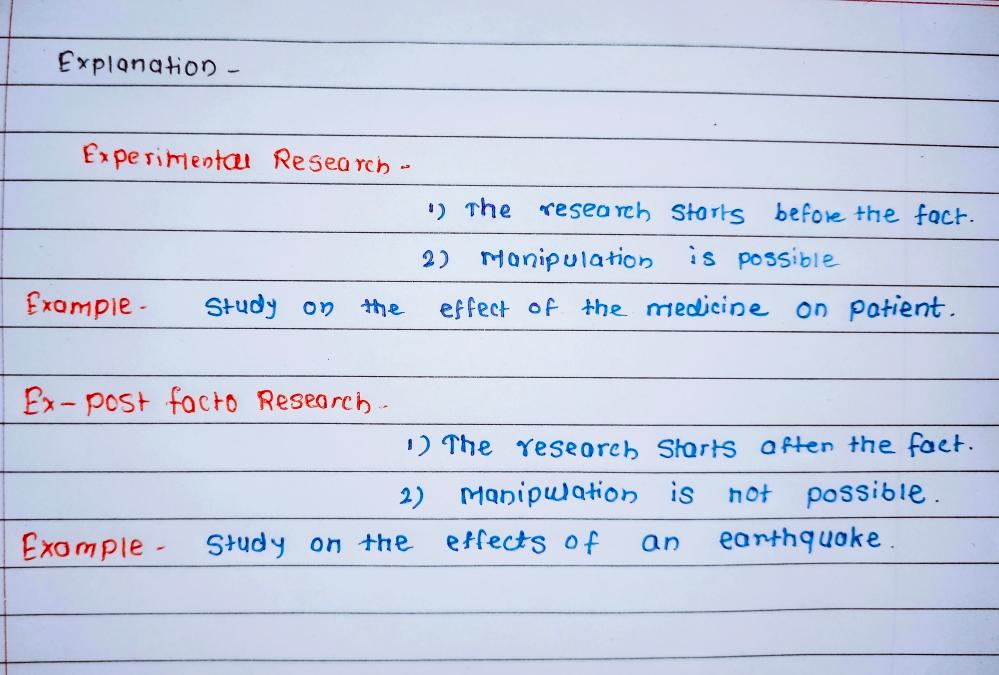 Explanation -
Experimental Research -
1) The research starts before the fact.
2) Manipulation is possible
Example - Study on the effect of the medicine on patient.
Ex-post facto Research -
1) The research starts after the fact.
2) Manipulation is not possible.
Example - Study on the effects of an earthquake.